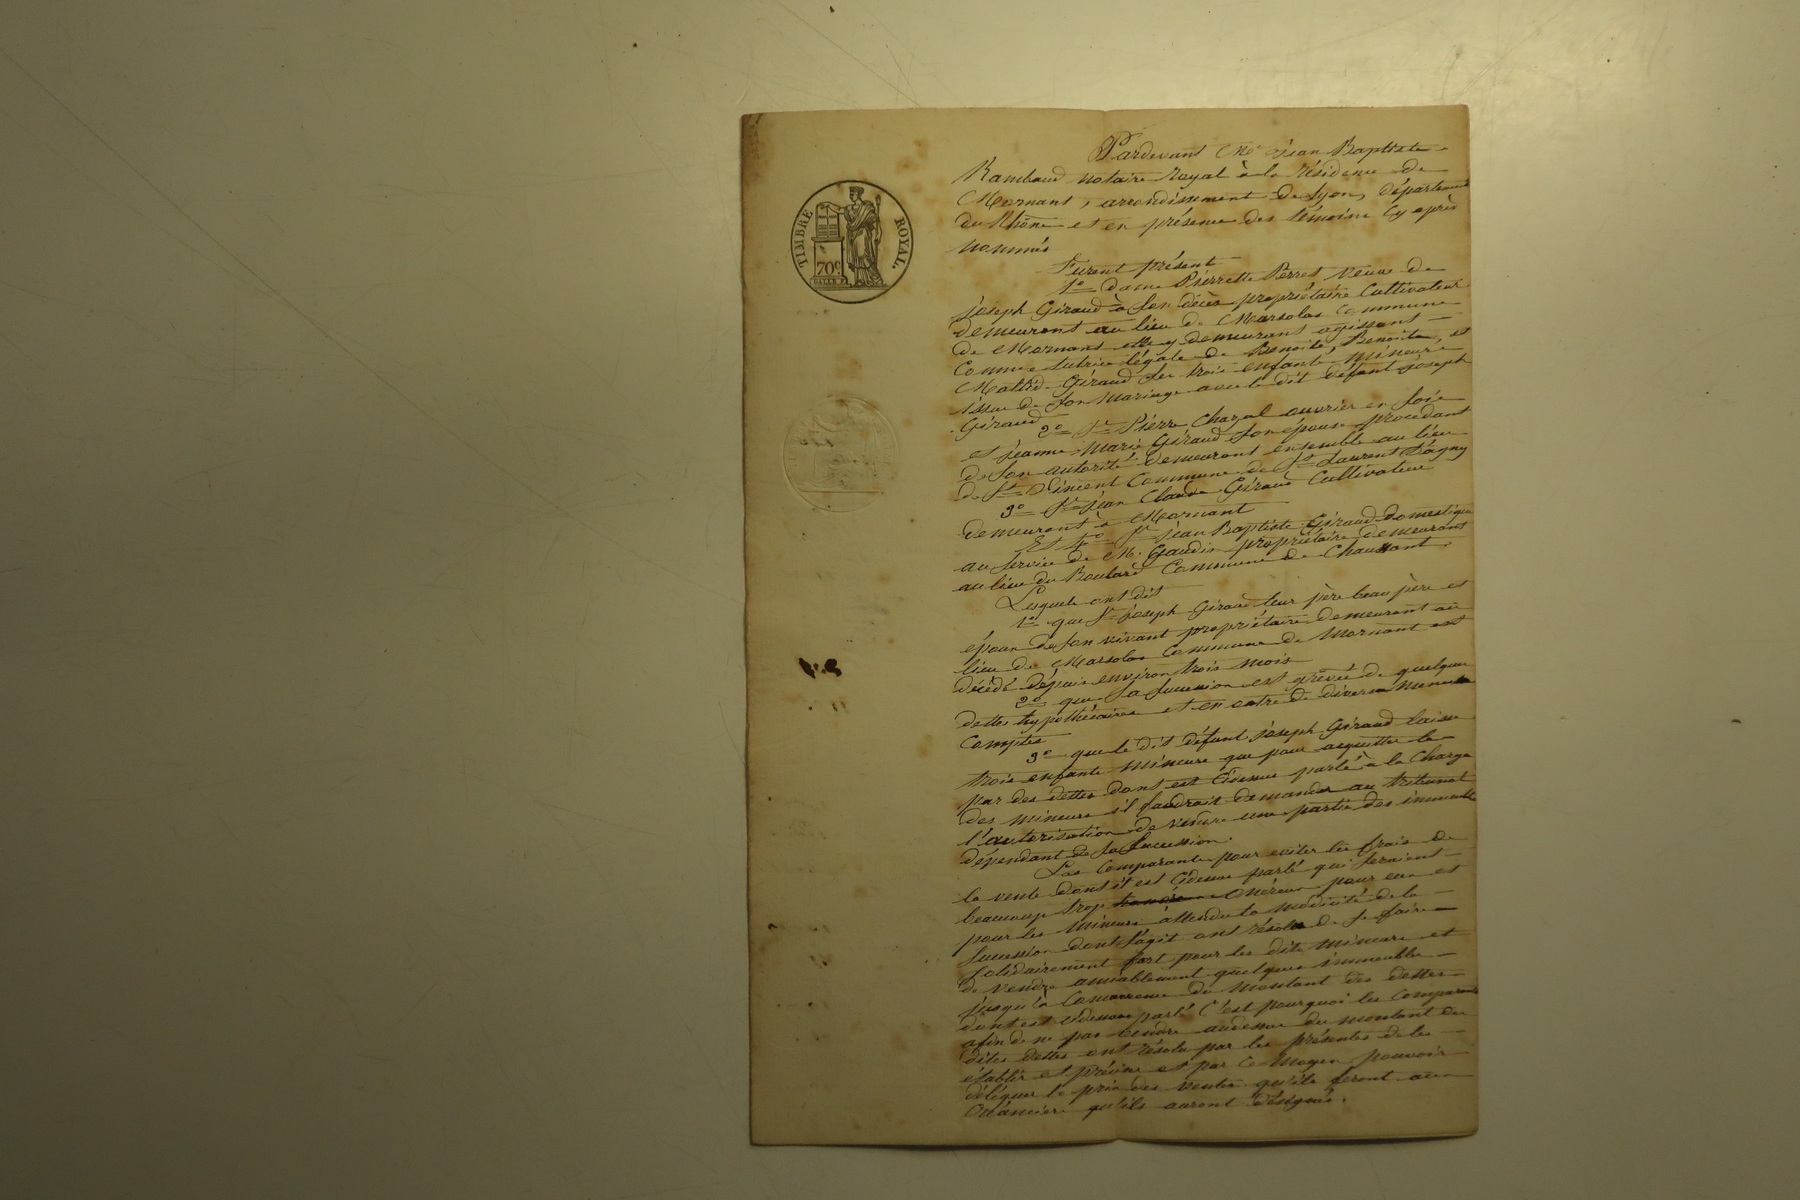 TIMBRE ROYAL.
70c.
Pardevant Me jean Baptiste
Rambaud notaire royal à la résidence de
Mornant, arrondissement de Lyon, département
du Rhône et en présence des témoins cy après
nommés
Furent présent
1o dame Pierrette Perret veuve de
joseph Giraud à son décès propriétaire Cultivateur
demeurant au lieu de Marsolas Commune
de Mornant elle y demeurant agissant
Comme tutrice légale de Benoit, Benoite, et
Giraud ses trois enfants mineurs
issus de son mariage avec le dit défunt joseph
Giraud
2o Sr Pierre Chazal ouvrier en soie
et jeanne Marie Giraud son épouse procédant
de son autorité demeurant ensemble au lieu
de St Vincent Commune de St Laurent d'agny
3o Sr jean Claude Giraud Cultivateur
demeurant à Mornant
Et 4o Sr jean Baptiste Giraud domestique
au service de M. Gaudin propriétaire demeurant
au lieu du Boulard Commune de Chaussant.
Lesquels ont dit
1o que Sr joseph Giraud leur père beau père et
époux de son vivant propriétaire demeurant au
lieu de Marsolas Commune de Mornant est
décédé depuis environ trois mois
2o que sa sucession est grevée de quelques
dettes hypothécaires et en outre de divers menus
Comptes
3o que le dit défunt joseph Giraud laisse
trois enfants mineurs que pour acquitter la
part des dettes dont est Cidessus parlé à la Charge
des mineurs il faudrait demander au tribunal
l'autorisation de vendre une partie des immeubles
dépendant de sa sucession.
Les Comparants pour eviter les frais de
la vente dont il est Cidessus parlé qui seraient
beaucoup trop onéreux pour eux et
pour les mineurs attendu la modicité de la
sucession dont s'agit ont résolu de se faire
solidairement fort pour les dits mineurs et
de vendre amiablement quelques immeubles
jusqu'à Concurrence du montant des dettes
dont est Cidessus parlé C'est pourquoi les Comparants
afin de ne pas vendre audessus du montant des
dites dettes ont résolu par les présentes de les
établir et préciser et par Ce moyen pouvoir
déléguer le prix des ventes qu'ils feront aux
Créanciers qu'ils auront désignés.